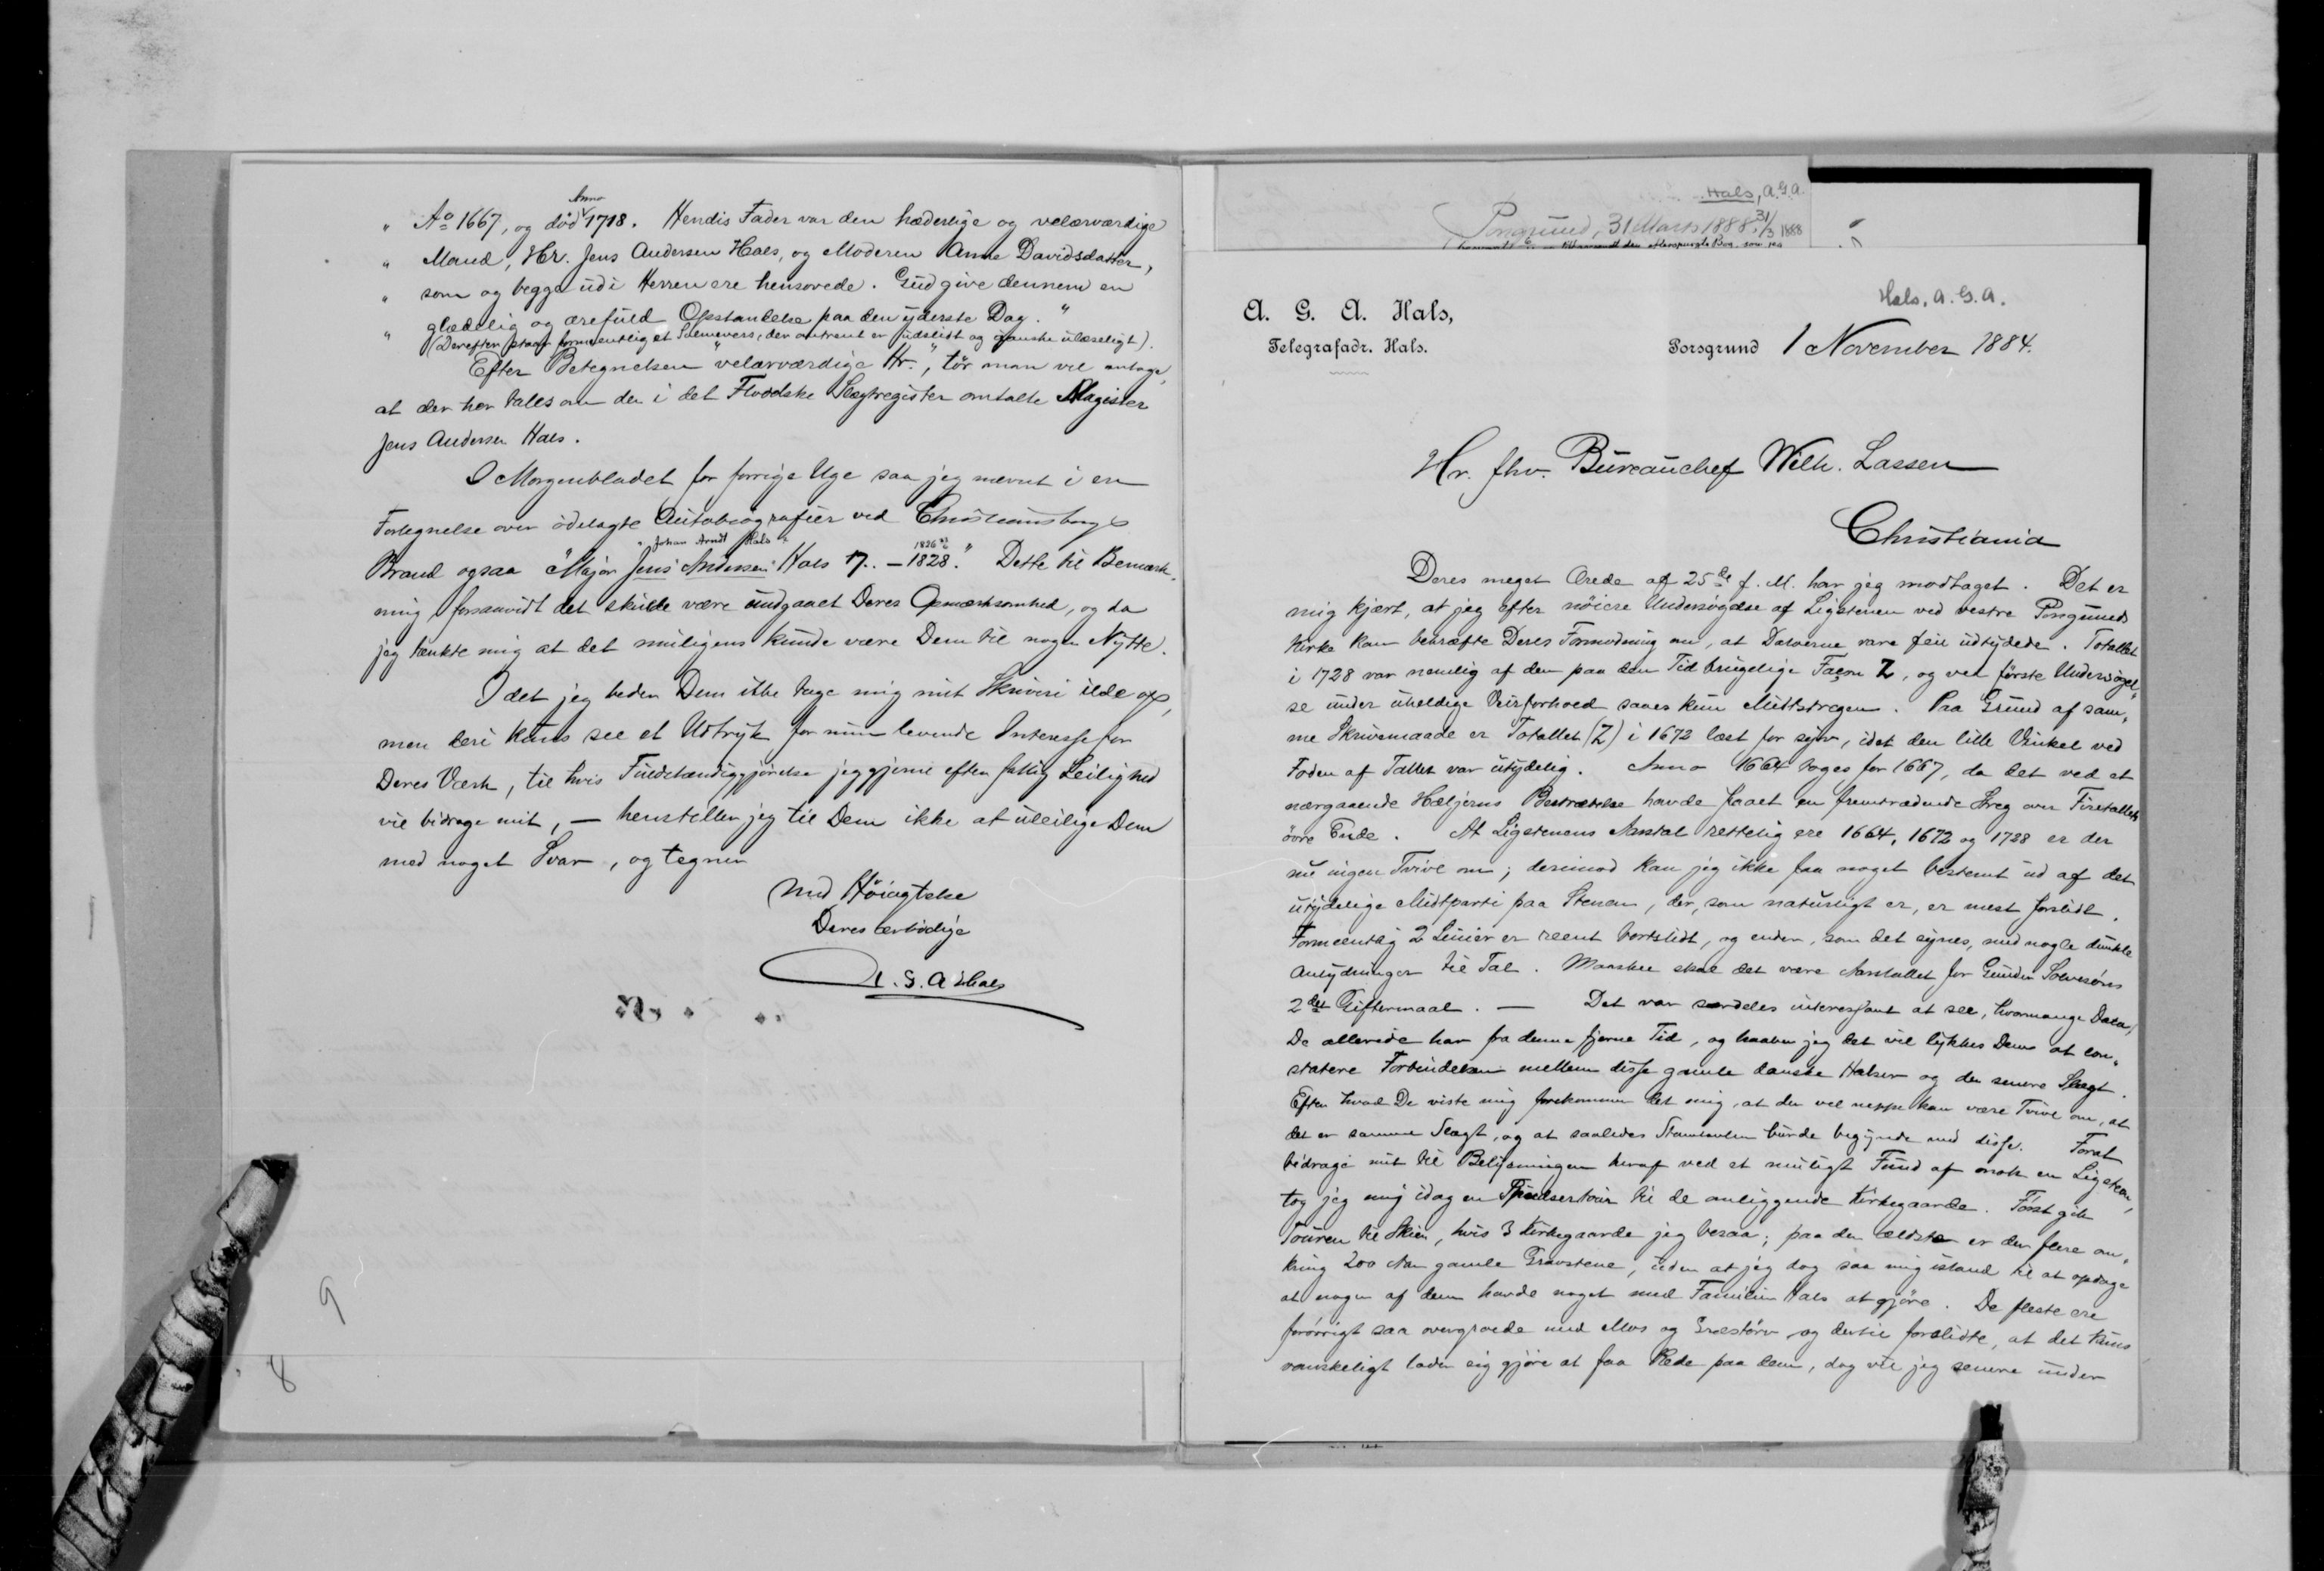 Anno
" Aº 1667, og død 1718. Hendis Fader var den hæderlige og velærværdige
" Mand, Hr. Jens Andersen Hals, og Moderen Anne Davidsdatter,
" som og begge udi Herren ere hensovede. Gud give dennem en
" glædelig og ærefuld Opstandelse paa den yderste Dag."
(Derefter staar formentlig et Salmevers, der omtrent er udslidt og ganske ulæseligt).
Efter Betegnelsen "velærværdige Hr.", tör man vel antage,
at der her tales om den i det Floodske Slægtregister omtalte Magister
Jens Andersen Hals.
I Morgenbladet for forrige Uge saa jeg nævnt i en
Fortegnelse over ödelagte Autobiografier ved Christiansborgs
"Johan Arndt Hals" 1826
Brand ogsaa "Major Jens Andersen Hals 17.. – 1828." Dette til Bemærk-
ning forsaavidt det skulde være undgaaet Deres Opmærksomhed, og da
jeg tænkte mig at det muligens kunde være Dem til nogen Nytte.
Idet jeg beder Dem ikke tage mig mit Skriveri ilde op,
men deri kuns see et Udtryk for min levende Interesse for
Deres Værk, til hvis Fuldstændiggjörelse jeg gjerne efter fattig Leilighed
vil bidrage mit, – henstiller jeg til Dem ikke at uleilige Dem
med noget Svar, og tegner
Med Höiagtelse
Deres ærbödige
A. G. A Hals
9
8
Hals, A.G.A.
Porsgrund, 31 Marts 1888. 31/3 1888
Hals, A.G.A.
A. G. A. Hals,
Telegrafadr. Hals.
Porsgrund 1 November 1884.
Hr. fhv. Bureauchef Wilh. Lassen
Christiania
Deres meget Ærede af 25de f. M. har jeg modtaget. Det er
mig kjært, at jeg efter nöiere Undersögelse af Ligstenen ved vestre Porsgrund
Kirke kan bekræfte Deres Formodning om, at Datoerne vare feil udtydede. Totallet
i 1728 var nemlig af den paa den Tid brugelige Façon Z, og ved förste Undersögel-
se under uheldige Veirforhold saaes kun Midtstregen. Paa Grund af sam-
me Skrivemaade er Totallet (Z) i 1672 læst for syv, idet den lille Vinkel ved
Foden af Tallet var utydelig. Anno 1664 toges for 1667, da det ved et
nærgaaende Hæljerns Berörelse havde faaet en fremtrædende Streg over Firetallets
övre Ende. At Ligstenens Aarstal rettelig ere 1664, 1672 og 1728 er der
nu ingen Tvivl om; derimod kan jeg ikke faa noget bestemt ud af det
utydelige Midtparti paa Stenen, der, som naturligt er, er mest forslidt.
Formeentlig 2 Linier er reent bortslidt, og ender, som det synes, med nogle dunkle
Antydninger til Tal. Maaskee skal det være Aarstallet for Gunder Solvesöns
2det Giftermaal. — Det var særdeles interessant at see, hvormange Data,
De allerede har fra denne fjerne Tid, og haaber jeg det vil lykkes Dem at con-
statere Forbindelsen mellem disse gamle danske Halser og den senere Slægt.
Efter hvad De viste mig forekommer det mig, at der vel neppe kan være Tvivl om, at
det er samme Slægt, og at saaledes Stamtavlen burde begynde med disse. Forat
bidrage mit til Belysningen heraf ved et muligt Fund af nok en Ligsten,
tog jeg mig idag en Spadsertour til de omliggende Kirkegaarde. Först gik
Touren til Skien, hvis 3 Kirkegaarde jeg besaa; paa den ældste er der flere om-
kring 200 Aar gamle Gravstene, uden at jeg dog saa mig istand til at opdage
at nogen af dem havde noget med Familien Hals at gjöre. De fleste ere
forövrigt saa overgroede med Mos og Græstörv og dertil forslidte, at det kuns
vanskeligt lader sig gjöre at faa Rede paa dem, dog vil jeg senere under